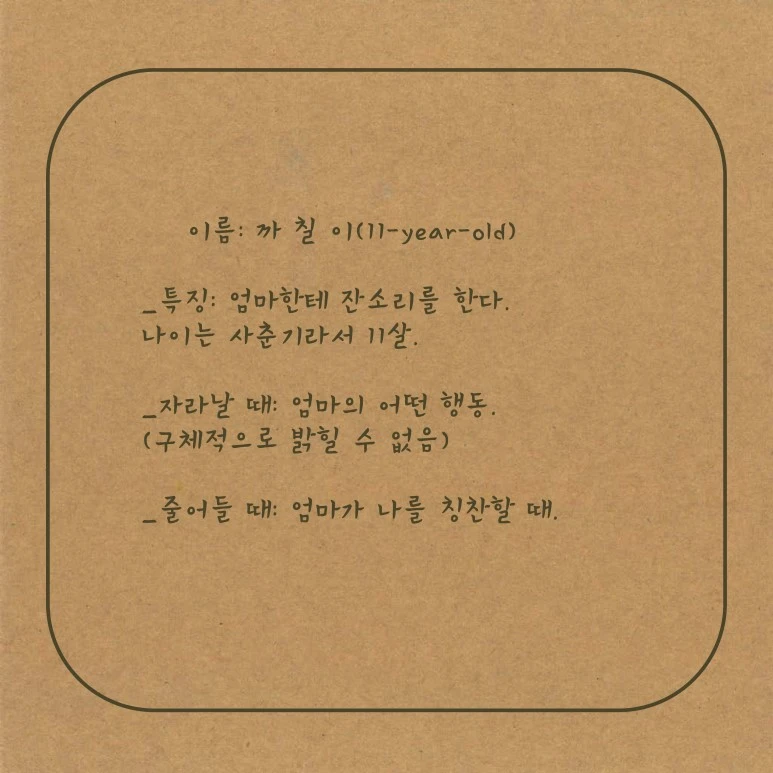 이름: 까 칠 이(11-year-old)
_특징: 엄마한테 잔소리를 한다.
나이는 사춘기라서 11살.
_자라날 때: 엄마의 어떤 행동.
(구체적으로 밝힐 수 없음)
_줄어들 때: 엄마가 나를 칭찬할 때.